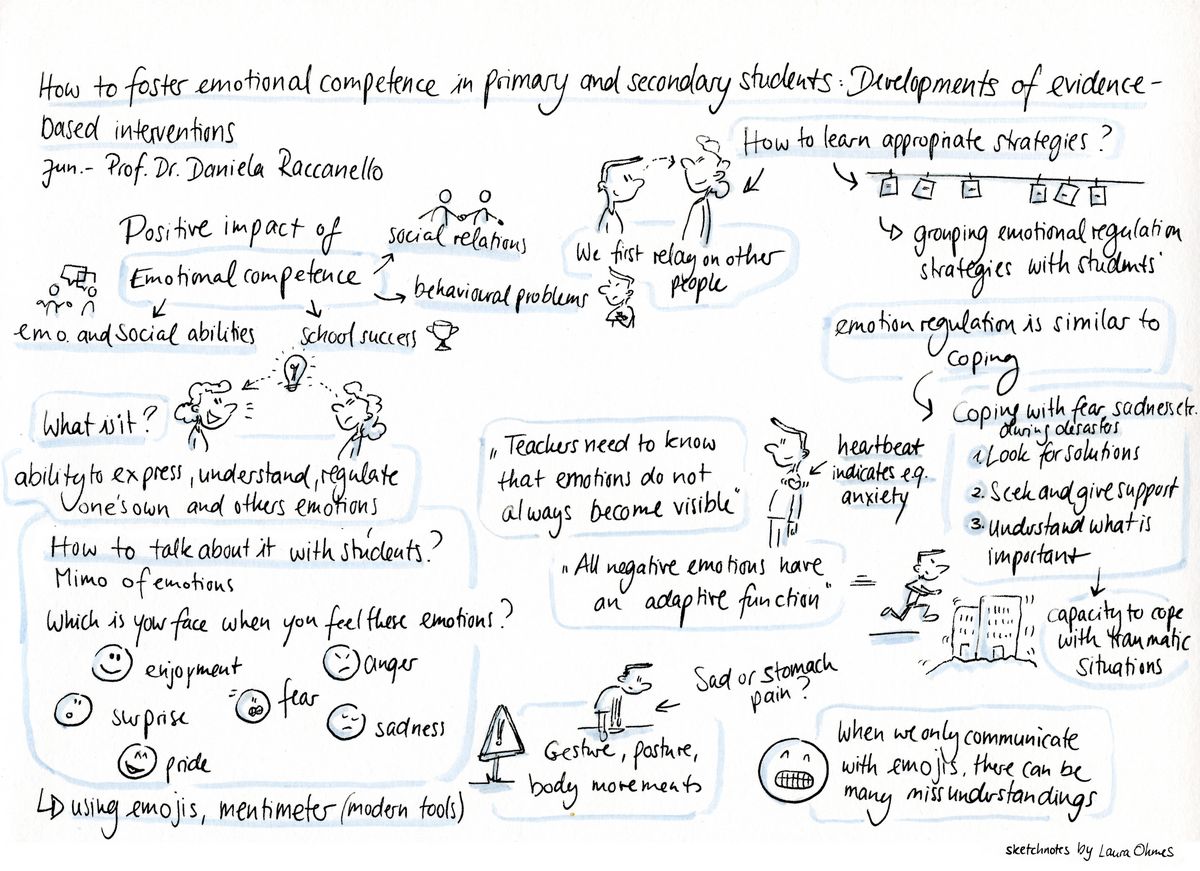 How to foster emotional competence in primary and secondary students: Developments of evidence-
based interventions
Jun.- Prof. Dr. Daniela Raccanello
Positive impact of
Emotional competence
social relations
behavioural problems
emo. and social abilities
school success
What is it?
ability to express, understand, regulate
one's own and others emotions
How to talk about it with students?
Mimo of emotions
Which is your face when you feel these emotions?
enjoyment
anger
surprise
fear
sadness
pride
using emojis, mentimeter (modern tools)
We first relay on other
people
How to learn appropriate strategies?
grouping emotional regulation
strategies with students
emotion regulation is similar to
coping
Coping with fear, sadness etc.
during desastos
1. Look for solutions
2. Seek and give support
3. Understand what is
important
capacity to cope
with traumatic
situations
„Teachers need to know
that emotions do not
always become visible"
heartbeat
indicates e.g.
anxiety
„All negative emotions have
an adaptive function"
=
Sad or stomach
pain?
!
Gesture, posture,
body movements
When we only communicate
with emojis, there can be
many missunderstandings
sketchnotes by Laura Ohmes